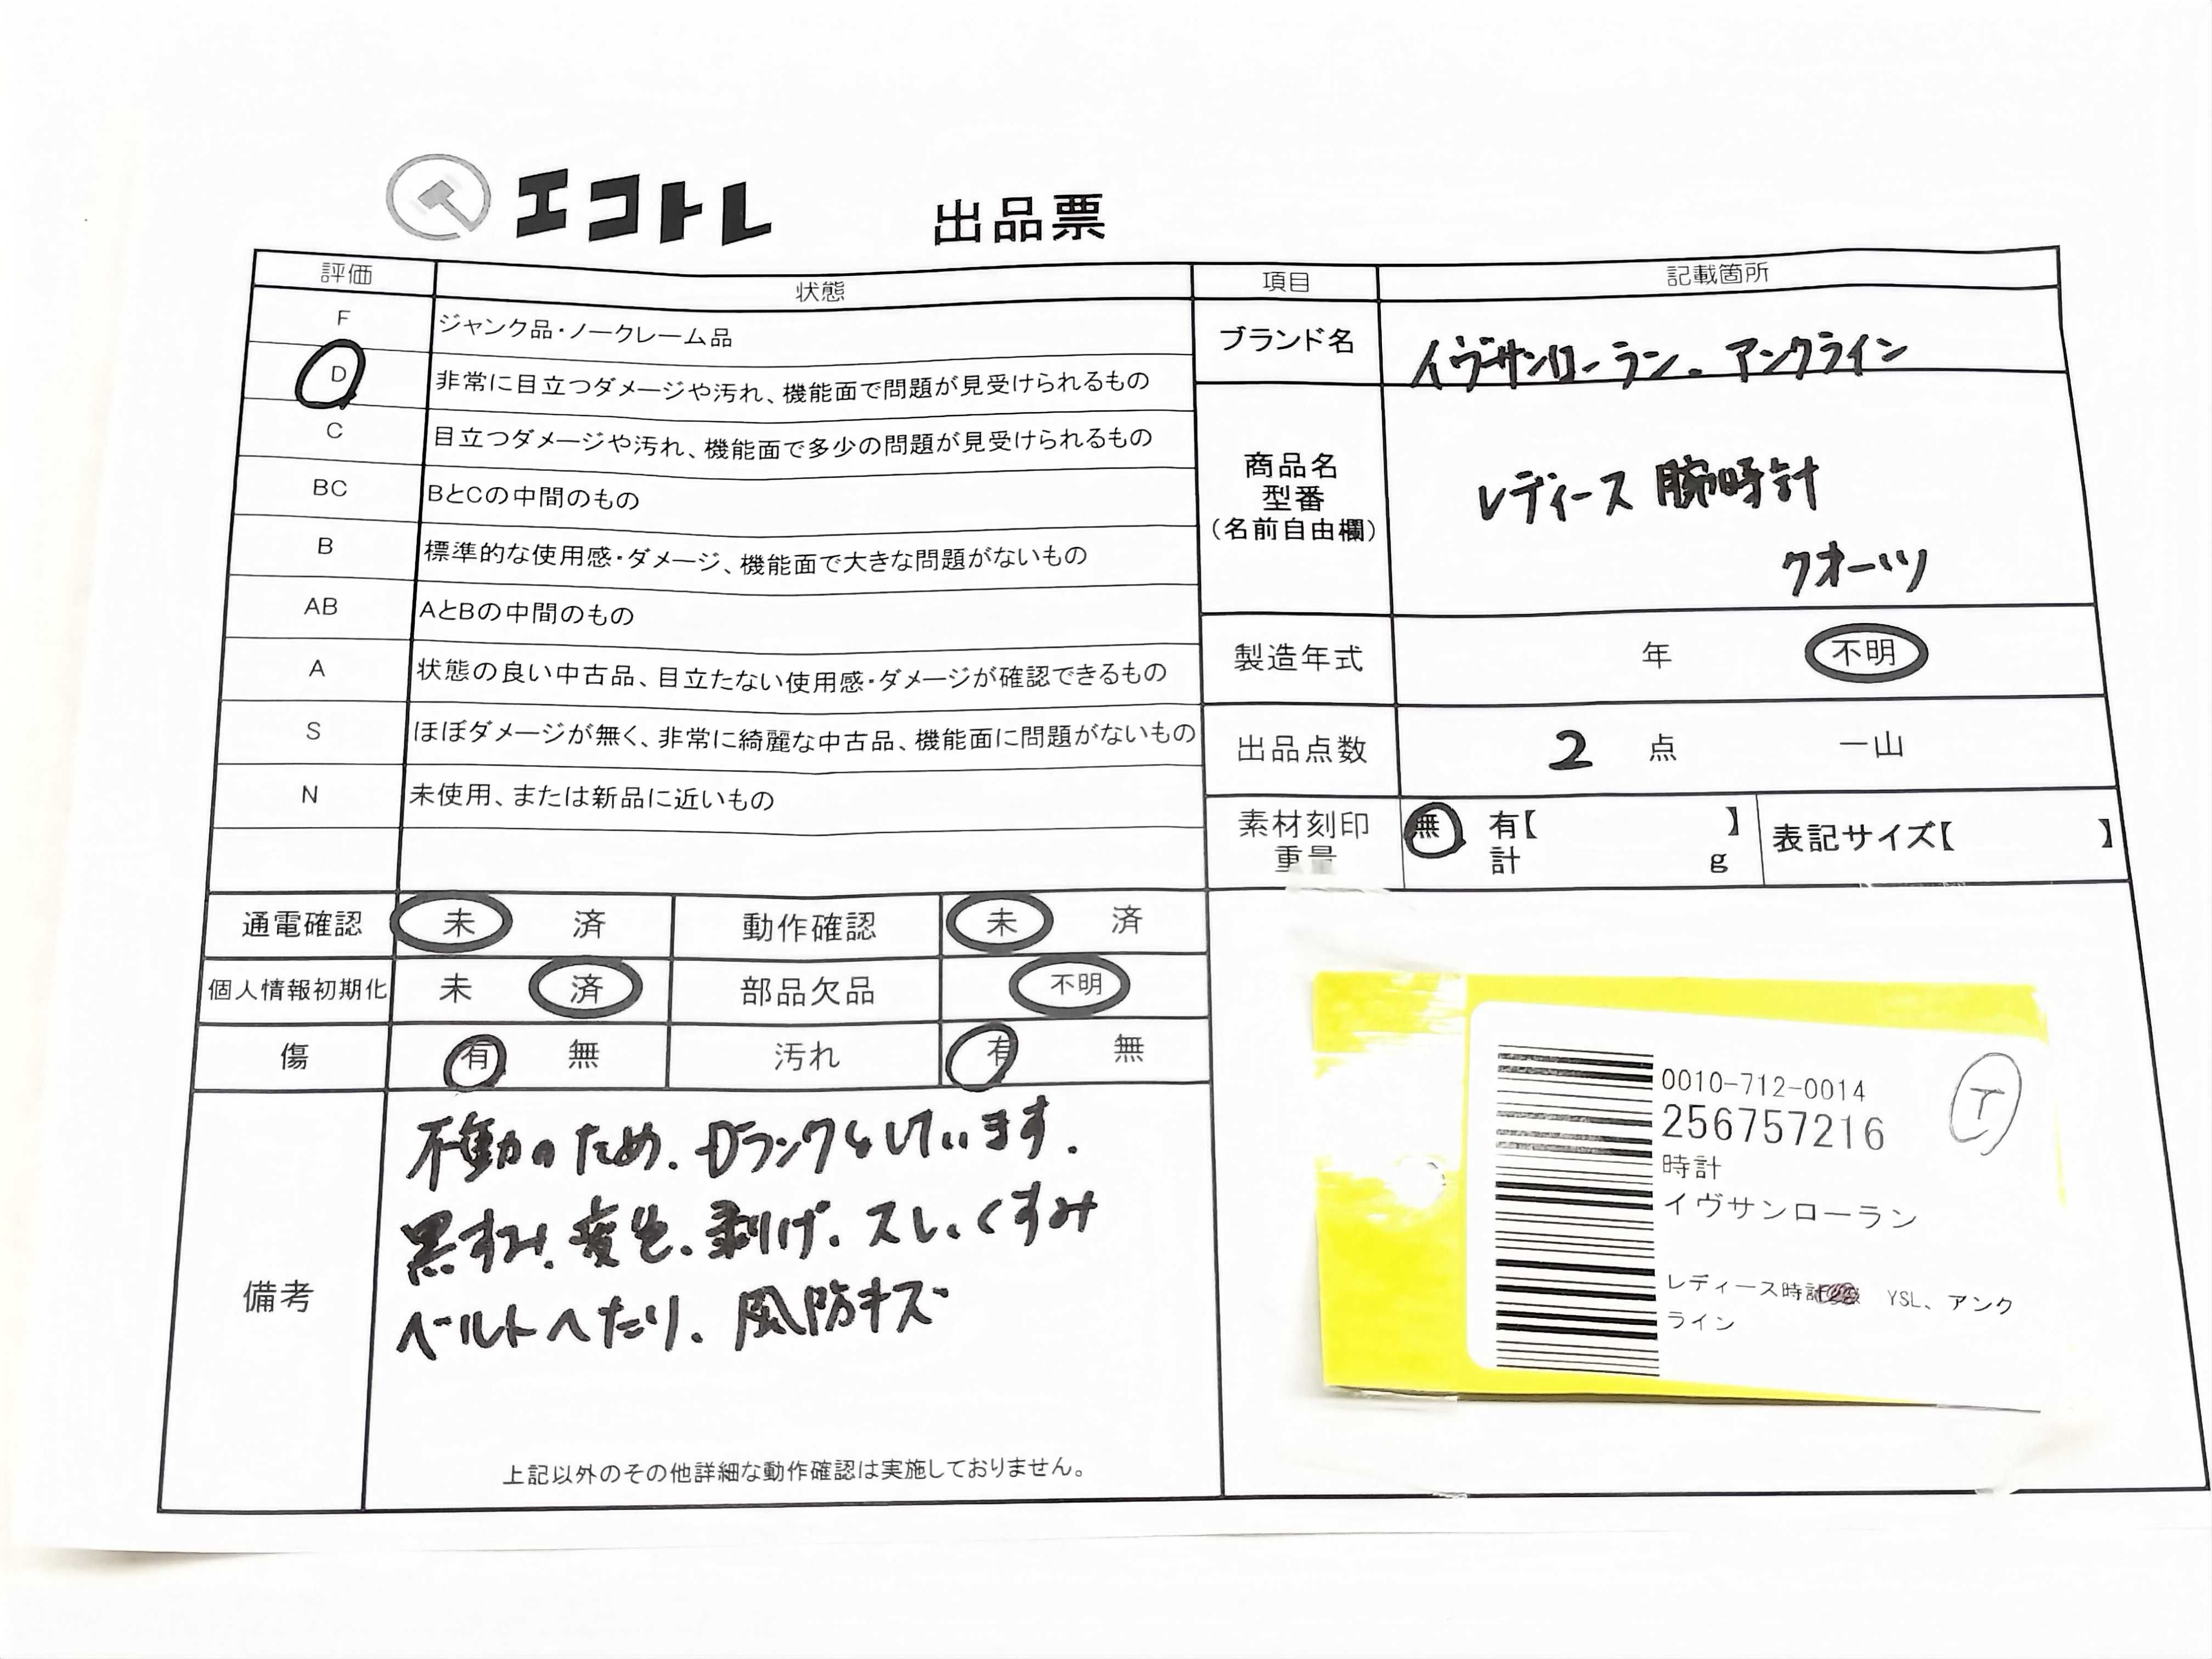 エコトレ 出品票
評価 状態
F ジャンク品・ノークレーム品
D 非常に目立つダメージや汚れ、機能面で問題が見受けられるもの
C 目立つダメージや汚れ、機能面で多少の問題が見受けられるもの
BC BとCの中間のもの
B 標準的な使用感・ダメージ、機能面で大きな問題がないもの
AB AとBの中間のもの
A 状態の良い中古品、目立たない使用感・ダメージが確認できるもの
S ほぼダメージが無く、非常に綺麗な中古品、機能面に問題がないもの
N 未使用、または新品に近いもの
項目 記載箇所
ブランド名 イヴサンローラン. アンクライン
商品名
型番
(名前自由欄)
レディース 腕時計
クオーツ
製造年式 年 不明
出品点数 2 点 一山
素材刻印 無 有【 】
重量 計 g
表記サイズ【 】
通電確認 未 済 動作確認 未 済
個人情報初期化 未 済 部品欠品 不明
傷 有 無 汚れ 有 無
備考
不動のため. Dランクとしています.
黒ずみ. 変色. 剥げ. スレ. くすみ
ベルトへたり. 風防キズ
上記以外のその他詳細な動作確認は実施しておりません。
0010-712-0014
256757216
T
時計
イヴサンローラン
レディース時計 YSL、アンク
ライン